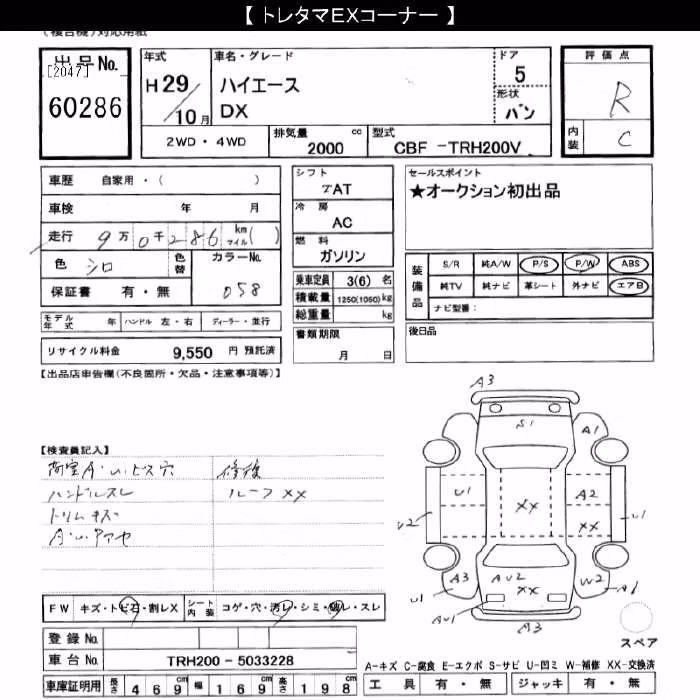 【 トレタマEXコーナー 】
(複合機)対応用紙
出品No.
[2047]
60286
年式
H29
10月
車名・グレード
ハイエース
DX
ドア
5
形状
バン
評価点
R
内装
C
2WD・4WD
排気量 cc
2000
型式
CBF -TRH200V
車歴 自家用・( )
車検 年 月
走行 9万0千286 km マイル( )
色 シロ
色替
カラーNo.
058
保証書 有・無
モデル年式 年 ハンドル 左・右 ディーラー・並行
リサイクル料金 9,550 円 預託済
シフト
AT
冷房
AC
燃料
ガソリン
乗車定員 3(6) 名
積載量 1250(1050)kg
総重量 kg
書類期限
月 日
セールスポイント
★オークション初出品
装備品
S/R 純A/W P/S P/W ABS
純TV 純ナビ 革シート 外ナビ エアB
ナビ型番:
後日品
【出品店申告欄(不良箇所・欠品・注意事項等)】
【検査員記入】
荷室A・U・ビス穴 修復
ハンドルスレ ルーフXX
トリムキズ
A3
S1
A1
U1
A2
U2
XX
XX
U1
A3
AU2
XX
W2
A6
U1
AU1
A3
スペア
FW キズ・トビ石・割レX
シート内装 コゲ・穴・汚レ・シミ・破レ・スレ
登録 No.
車台 No. TRH200 - 5033228
車庫証明用 長さ 469 幅 169 高さ 198
A-キズ C-腐食 E-エクボ S-サビ U-凹ミ W-補修 XX-交換済
工具 有・無 ジャッキ 有・無